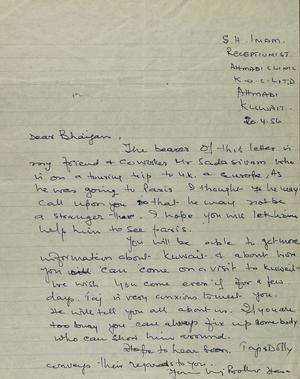 S.H. IMAM.
RECEPTIONIST
AHMADI CLINIC
K.O.C. LTD
AHMADI
KUWAIT.
20.4.56
Dear Bhaijan,
The bearer of this letter is
my friend & coworker Mr Sadasivam who
is on a touring trip to U.K. & europe. As
he was going to Paris I thought he may
call upon you so that he may not be
a stranger there. I hope you will
help him to see paris.
You will be able to get more
information about Kuwait & about how
you can come on a visit to Kuwait
We wish you come even if for a few
days. Taj is very anxious to meet you.
He will tell you all about us. If you are
too busy you can always fix up somebody
who can show him around.
Hope to hear soon. Taj & Dolly
conveys their regards to you.
Your Brother